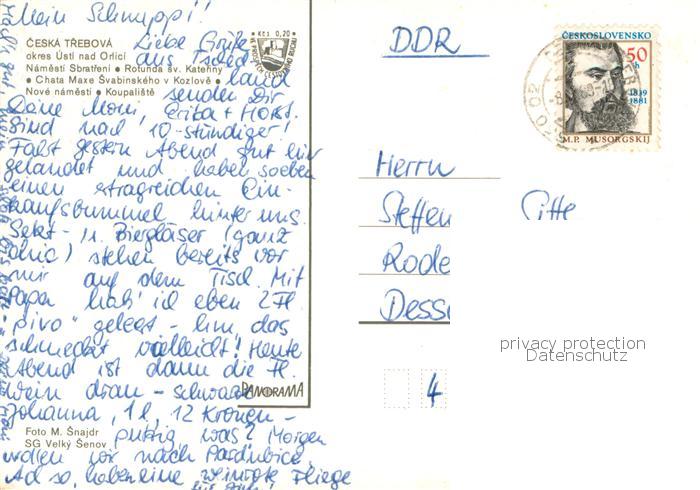 Mein Schnuppi!!
ČESKÁ TŘEBOVÁ
okres Ústí nad Orlicí
Náměstí Sbratření ● Rotunda sv. Kateřiny
● Chata Maxe Švabinského v Kozlově ●
Nové náměstí ● Koupaliště
Kčs 0,20
Liebe Grüße
aus
land
senden Dir
Deine Moni, Erika + Horst.
Sind nach 10-stündiger
Fahrt gestern Abend gut hier
gelandet und haben soeben
einen ertragreichen Ein-
kaufsbummel hinter uns.
Sekt- u. Biergläser (ganz
) stehen bereits vor
mir auf dem Tisch. Mit
Papa hab' ich eben 2 Fl.
"pivo" geleert - hm, das
schmeckt vielleicht! Heute
Abend ist dann die Fl.
Wein dran - schwarze
Johanna, 1 l, 12 Kronen -
putzig, was? Morgen
wollen wir nach Pardubice.
Ad so, haben eine Fliege
PANORAMA
Foto M. Šnajdr
SG Velký Šenov
DDR
ČESKOSLOVENSKO
50 h
1839
1881
M.P. MUSORGSKIJ
Herrn
Steffen
Rode
Dess
4
privacy protection
Datenschutz